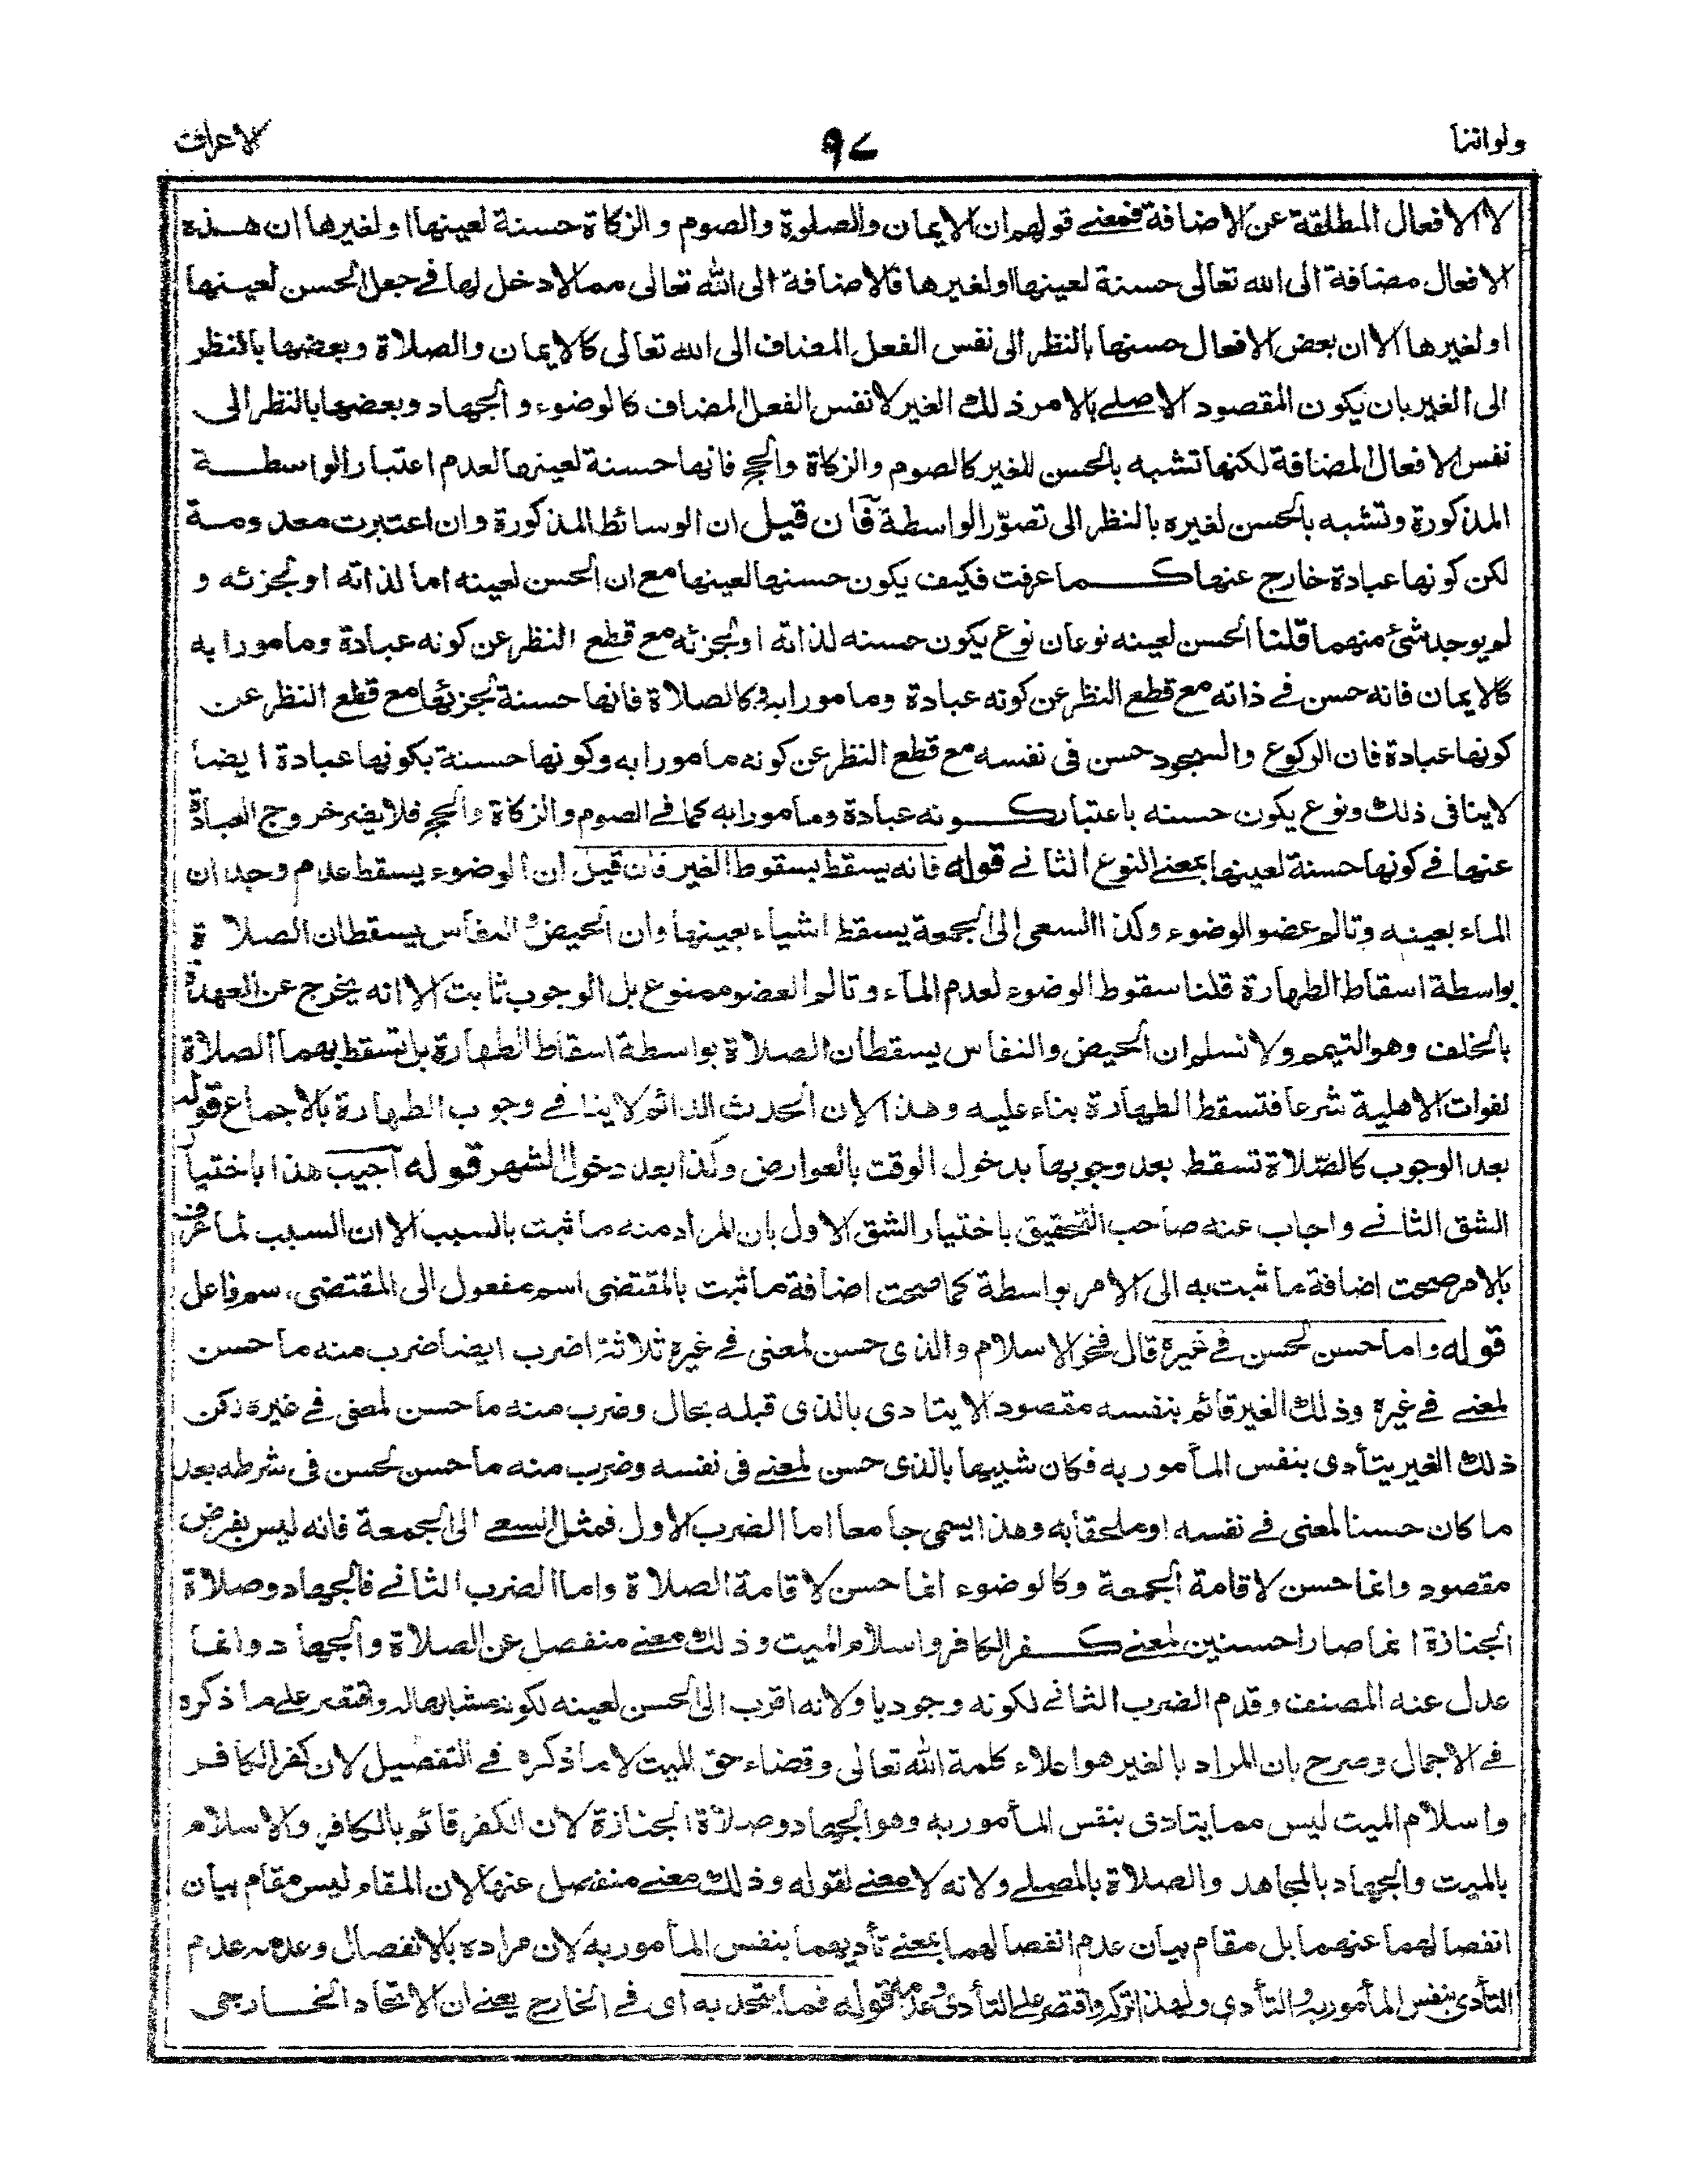 لا الافعال المطلقة عن الاضافة فمعنے قولهم ان الايمان والصلوة والصوم والزكاة حسنة لعينها او لغيرها ان هذه
الافعال مضافة الى الله تعالى حسنة لعينها او لغيرها فالاضافة الى الله تعالى مما لا دخل لها فے جعل الحسن لعينها
او لغيرها الا ان بعض الافعال حسنها بالنظر الى نفس الفعل المضاف الى الله تعالى كالايمان والصلاة وبعضها بالنظر
الى الغير بان يكون المقصود الاصلے بالامر ذلك الغير لا نفس الفعل المضاف كالوضوء والجهاد وبعضها بالنظر الى
نفس الافعال المضافة لكنها تشبه بالحسن للغير كالصوم والزكاة والحج فانها حسنة لعينها لعدم اعتبار الواسطة
المذكورة وتشبه بالحسن لغيره بالنظر الى تصوّر الواسطة فان قيل ان الوسائط المذكورة وان اعتبرت معدومة
لكن كونها عبادة خارج عنها كما عرفت فكيف يكون حسنها لعينها مع ان الحسن لعينه اما لذاته او لجزئه و
لم يوجد شئ منهما قلنا الحسن لعينه نوعان نوع يكون حسنه لذاته او لجزئه مع قطع النظر عن كونه عبادة ومامورا به
كالايمان فانه حسن فے ذاته مع قطع النظر عن كونه عبادة ومامورا به وكالصلاة فانها حسنة لجزئها مع قطع النظر عن
كونها عبادة فان الركوع والسجود حسن فى نفسه مع قطع النظر عن كونه مامورا به وكونها حسنة بكونها عبادة ايضا
لا ينافى ذلك ونوع يكون حسنه باعتبار كونه عبادة ومامورا به كما فے الصوم والزكاة والحج فلا يضر خروج العبادة
عنها فے كونها حسنة لعينها بمعنے النوع الثانے قوله فانه يسقط بسقوط الغير فان قيل ان الوضوء يسقط عدم وجدان
الماء بعينه وتالم عضو الوضوء وكذا السعى الى الجمعة يسقط اشياء بعينها وان الحيض والنفاس يسقطان الصلاة
بواسطة اسقاط الطهارة قلنا سقوط الوضوء لعدم الماء وتالم العضو ممنوع بل الوجوب ثابت الا انه يخرج عن العهدة
بالخلف وهو التيمم ولا نسلم ان الحيض والنفاس يسقطان الصلاة بواسطة اسقاط الطهارة بل تسقط بهما الصلاة
لفوات الاهلية شرعا فتسقط الطهارة بناء عليه وهذا لان الحدث الدائم لا ينافے وجوب الطهارة بالاجماع قوله
بعد الوجوب كالصّلاة تسقط بعد وجوبها بدخول الوقت بالعوارض وكذا بعد دخول الشهر قوله اجيب هذا باختيار
الشق الثانے واجاب عنه صاحب التحقيق باختيار الشق الاول بان المراد منه ما ثبت بالسبب الا ان السبب لما عرف
بالامر صحت اضافة ما ثبت به الى الامر بواسطة كما صحت اضافة ما ثبت بالمقتضى اسم مفعول الى المقتضى اسم فاعل
قوله واما حسن لحسن فے غيره قال فخر الاسلام والذى حسن لمعنى فے غيره ثلاثة اضرب ايضا ضرب منه ما حسن
لمعنے فے غيره وذلك الغير قائم بنفسه مقصود الا يتادى بالذى قبله بحال وضرب منه ما حسن لمعنى فے غيره لكن
ذلك الغير يتأدى بنفس المأمور به فكان شبيها بالذى حسن لمعنے فى نفسه وضرب منه ما حسن لحسن فى شرطه بعد
ما كان حسنا لمعنى فے نفسه او ملحقا به وهذا يسمى جامعا اما الضرب الاول فمثل السعے الى الجمعة فانه ليس بفرض
مقصود وانما حسن لاقامة الجمعة وكالوضوء انما حسن لاقامة الصلاة واما الضرب الثانے فالجهاد وصلاة
الجنازة انما صارا حسنين لمعنے كفر الكافر واسلام الميت وذلك معنے منفصل عن الصلاة والجهاد وانما
عدل عنه المصنف وقدم الضرب الثانے لكونه وجوديا ولانه اقرب الى الحسن لعينه لكونه مشابها له واقتصر على ما ذكره
فے الاجمال وصرح بان المراد بالغير هو اعلاء كلمة الله تعالى وقضاء حق الميت لا ما ذكره فے التفصيل لان كفر الكافر
واسلام الميت ليس مما يتادى بنفس المأمور به وهو الجهاد وصلاة الجنازة لان الكفر قائم بالكافر والاسلام
بالميت والجهاد بالمجاهد والصلاة بالمصلے ولانه لا معنے لقوله وذلك معنے منفصل عنها لان المقام ليس مقام بيان
انفصالهما عنهما بل مقام بيان عدم انفصالهما بمعنے تأديهما بنفس المأمور به لان مراده بالانفصال وعدمه عدم
التأدى بنفس المأمور به والتأدى ولهذا ترك واقتصر على التأدى وعدمه قوله فما يتحد به اى فے الخارج يعنے ان الاتحاد الخارجى
ولواننا
٩٧